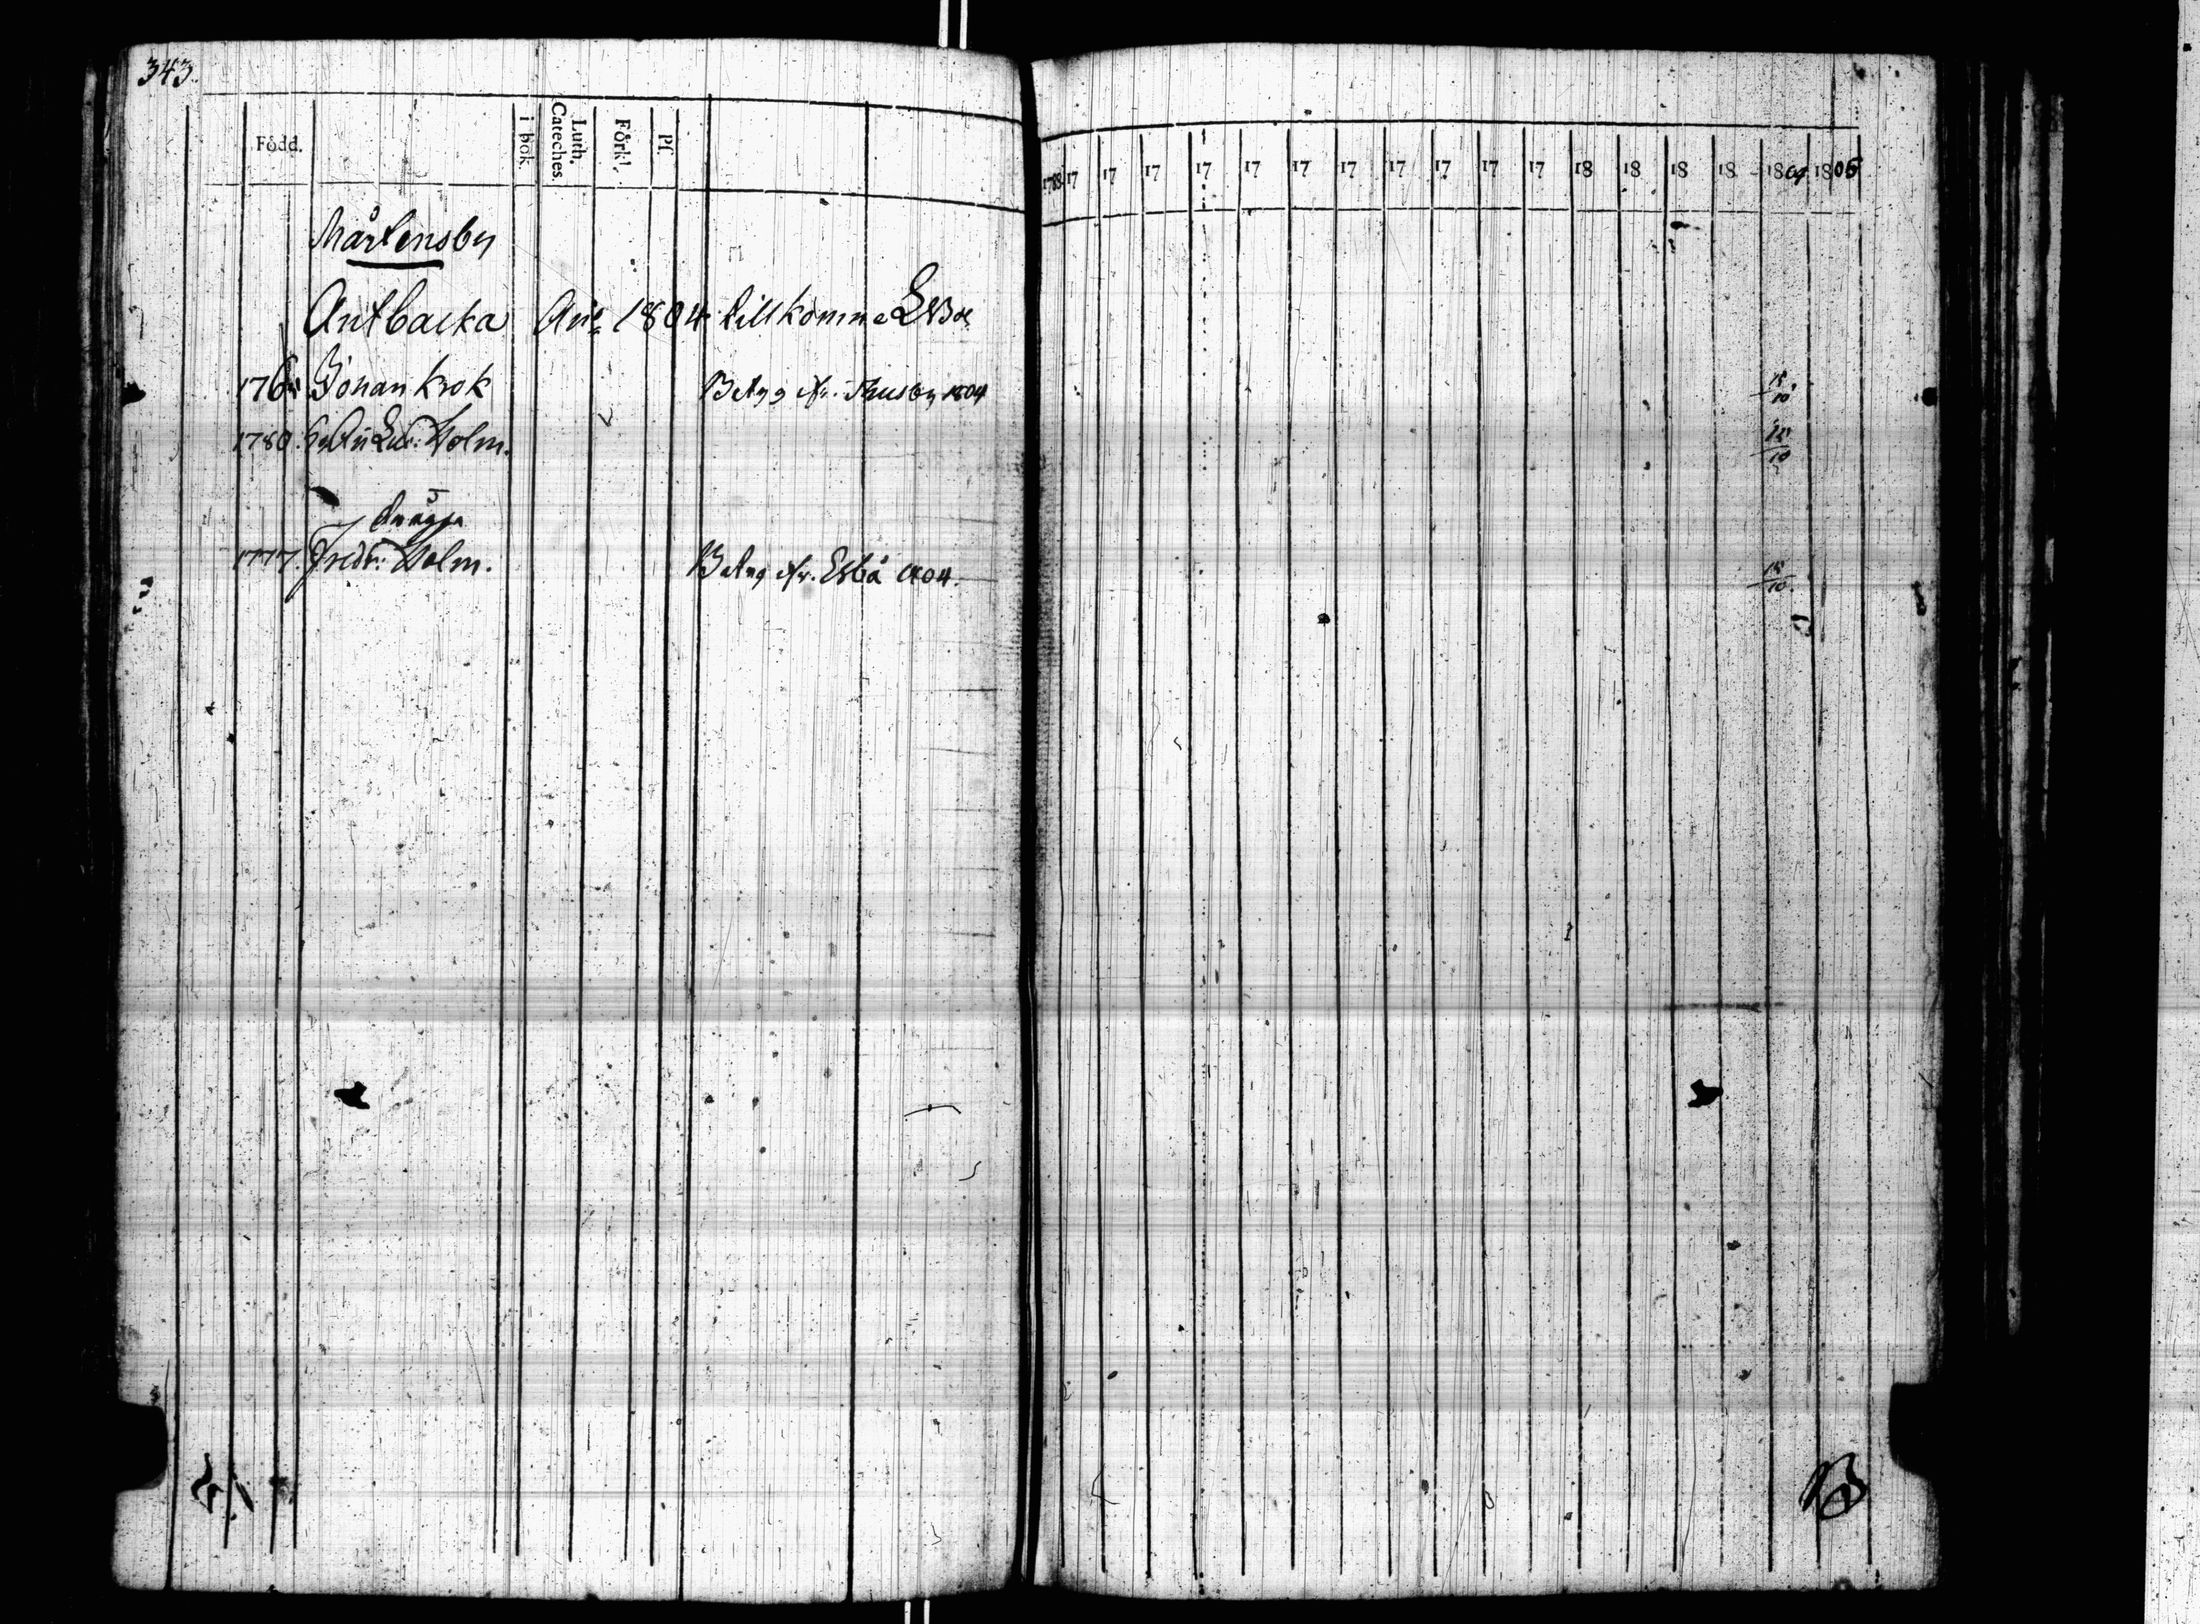 343.
Född.
i bok.
Luth. Cateches.
Förkl.
Pſ.
1788 17 17 17 17 17 17 17 17 17 17 17 18 18 18 18 1804 1805
Mårtensby
Antbacka Año 1804 tillkomne
Johan Krok Betyg ifr. Thusby 1804 15/10
1780. Holm. 15/10
1777. Fredr: Holm. Betyg ifr. Esbå 1804. 15/10.